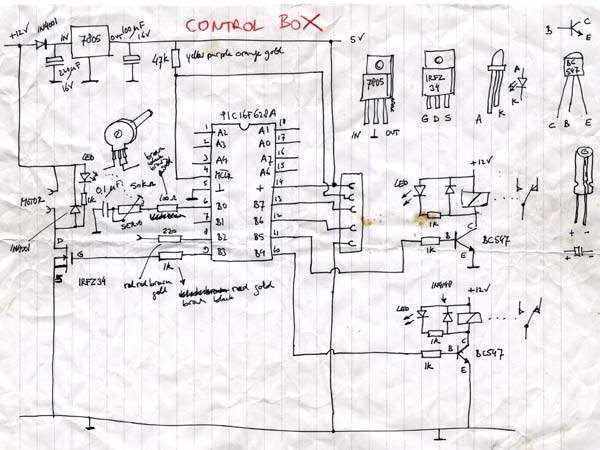 CONTROL BOX
+12V
1N4001
IN
7805
OUT
100µF
16V
16V
47K
yellow purple orange gold
5V
7805
IN ⊥ OUT
IRFZ
34
G D S
A K
A
K
B
C
E
BC
547
C B E
+ -
+ -
PIC16F628A
1 A2
2 A3
3 A4
4 MCLR
5 ⊥
6 B0
7 B1
8 B2
9 B3
A1 18
A0 17
A7 16
A6 15
+ 14
B7 13
B6 12
B5 11
B4 10
LED
1K
MOTOR
1N4001
0,1µF
50KΩ
SERVO
brown
100Ω
220
red red brown
gold
1K
red gold
brown black
D
G
S
IRFZ34
LED
1K
+12V
1K
B
C
E
BC547
1N4148
LED
1K
+12V
1K
B
C
E
BC547